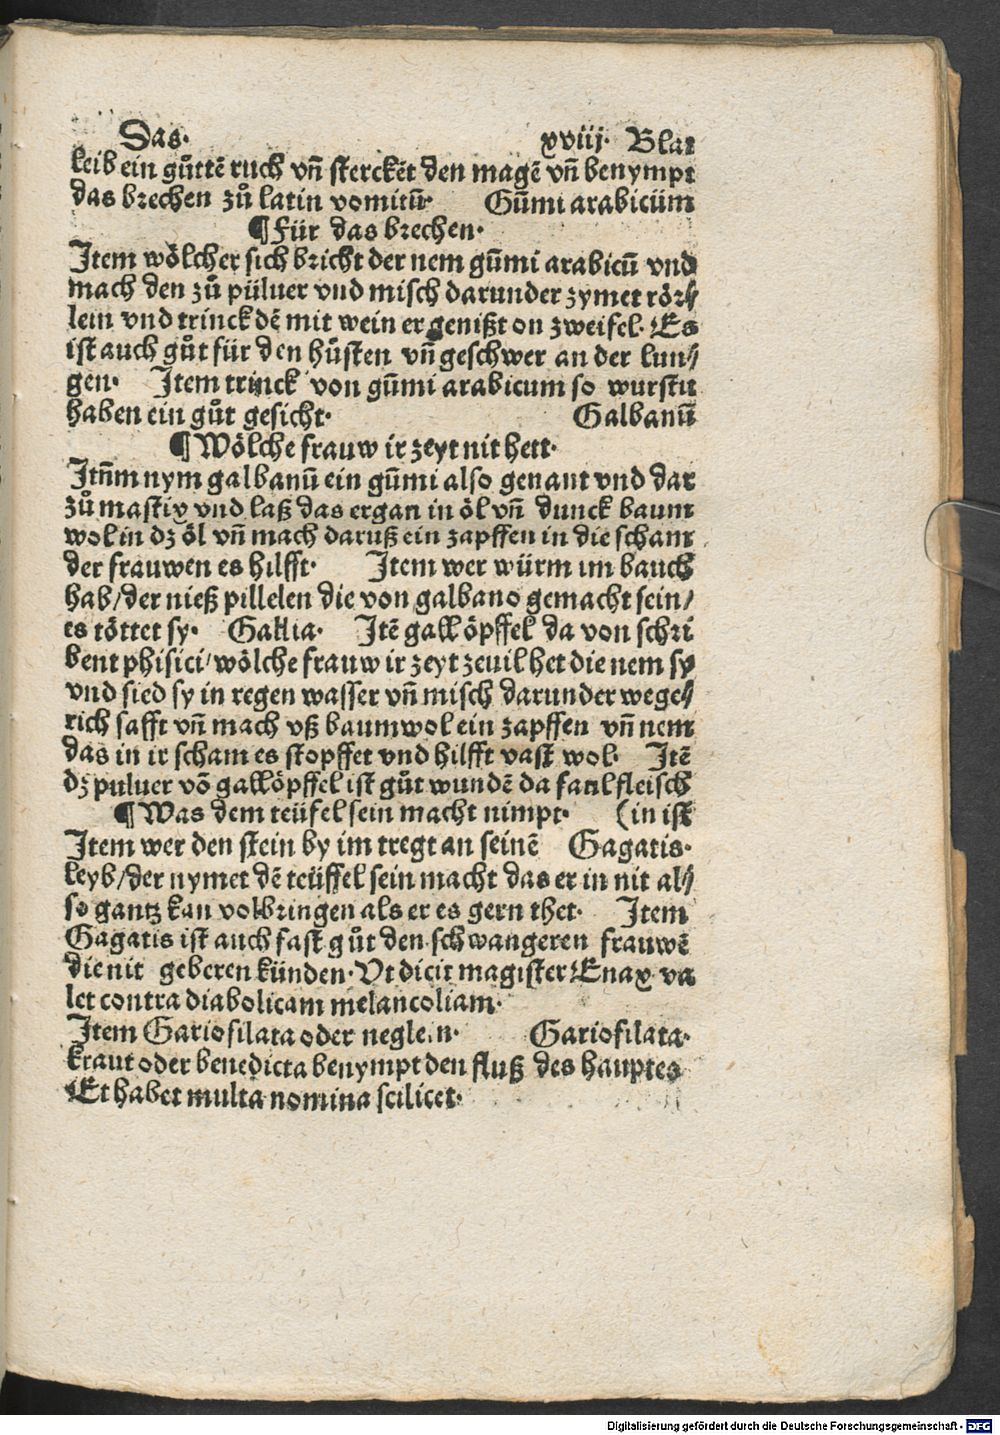 Das. xviij. Blat
leib ein gůttē ruch vñ sterckēt den magē vñ benympt
das brechen zů latin vomitū. Gūmi arabicüm
¶ Für das brechen.
Item wölcher sich bricht der nem gūmi arabicū vnd
mach den zů püluer vnd misch darunder zymet rör⸗
lein vnd trinck dē mit wein er genißt on zweifel. Es
ist auch gůt für den hůsten vñ geschwer an der lun⸗
gen. Item trinck von gūmi arabicum so wurstu
haben ein gůt gesicht. Galbanū
¶ Wölche frauw ir zeyt nit hett.
Itm̄m nym galbanū ein gūmi also genant vnd dar
zů mastix vnd laß das ergan in öl vñ dunck baum
wol in dz öl vñ mach daruß ein zapffen in die scham
der frauwen es hilfft. Item wer würm im bauch
hab/der nieß pillelen die von galbano gemacht sein/
es töttet sy. Gallia. Itē gall öpffel da von schri
bent phisici/wölche frauw ir zeyt zeuil het die nem sy
vnd sied sy in regen wasser vñ misch darunder wege⸗
rich safft vñ mach vß baumwol ein zapffen vñ nem
das in ir scham es stopffet vnd hilfft vast wol. Itē
dz puluer vō gallöpffel ist gůt wundē da faul fleisch
¶ Was dem teüfel sein macht nimpt. (in ist
Item wer den stein by im tregt an seinē Gagatis.
leyb/der nymet dē teüffel sein macht das er in nit al⸗
so gantz kan volbringen als er es gern thet. Item
Gagatis ist auch fast gůt den schwangeren frauwē
die nit geberen künden. Vt dicit magister Enax va
let contra diabolicam melancoliam.
Item Gariofilata oder neglein. Gariofilata.
kraut oder benedicta benympt den fluß des hauptes
Et habet multa nomina scilicet.
Digitalisierung gefördert durch die Deutsche Forschungsgemeinschaft - DFG